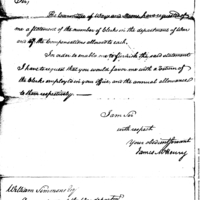 Sir,
The Committee of Ways and Means have requested of
me a statement of the number of clerks in the department of War
and of the compensations allowed to each.
In order to enable me to furnish the said statement
I have to request that you would favor me with a return of
the Clerks employed in your office, and the annual allowance
to them respectively.
I am Sir
with respect
Your obed servant
James McHenry
William Simmons Esq